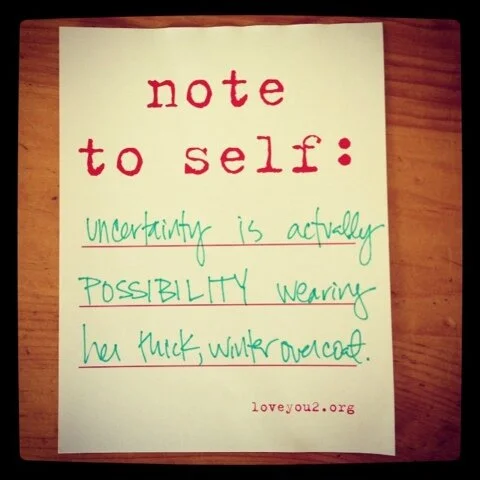 note
to self:
uncertainty is actually
POSSIBILITY wearing
her thick, winter overcoat.
loveyou2.org